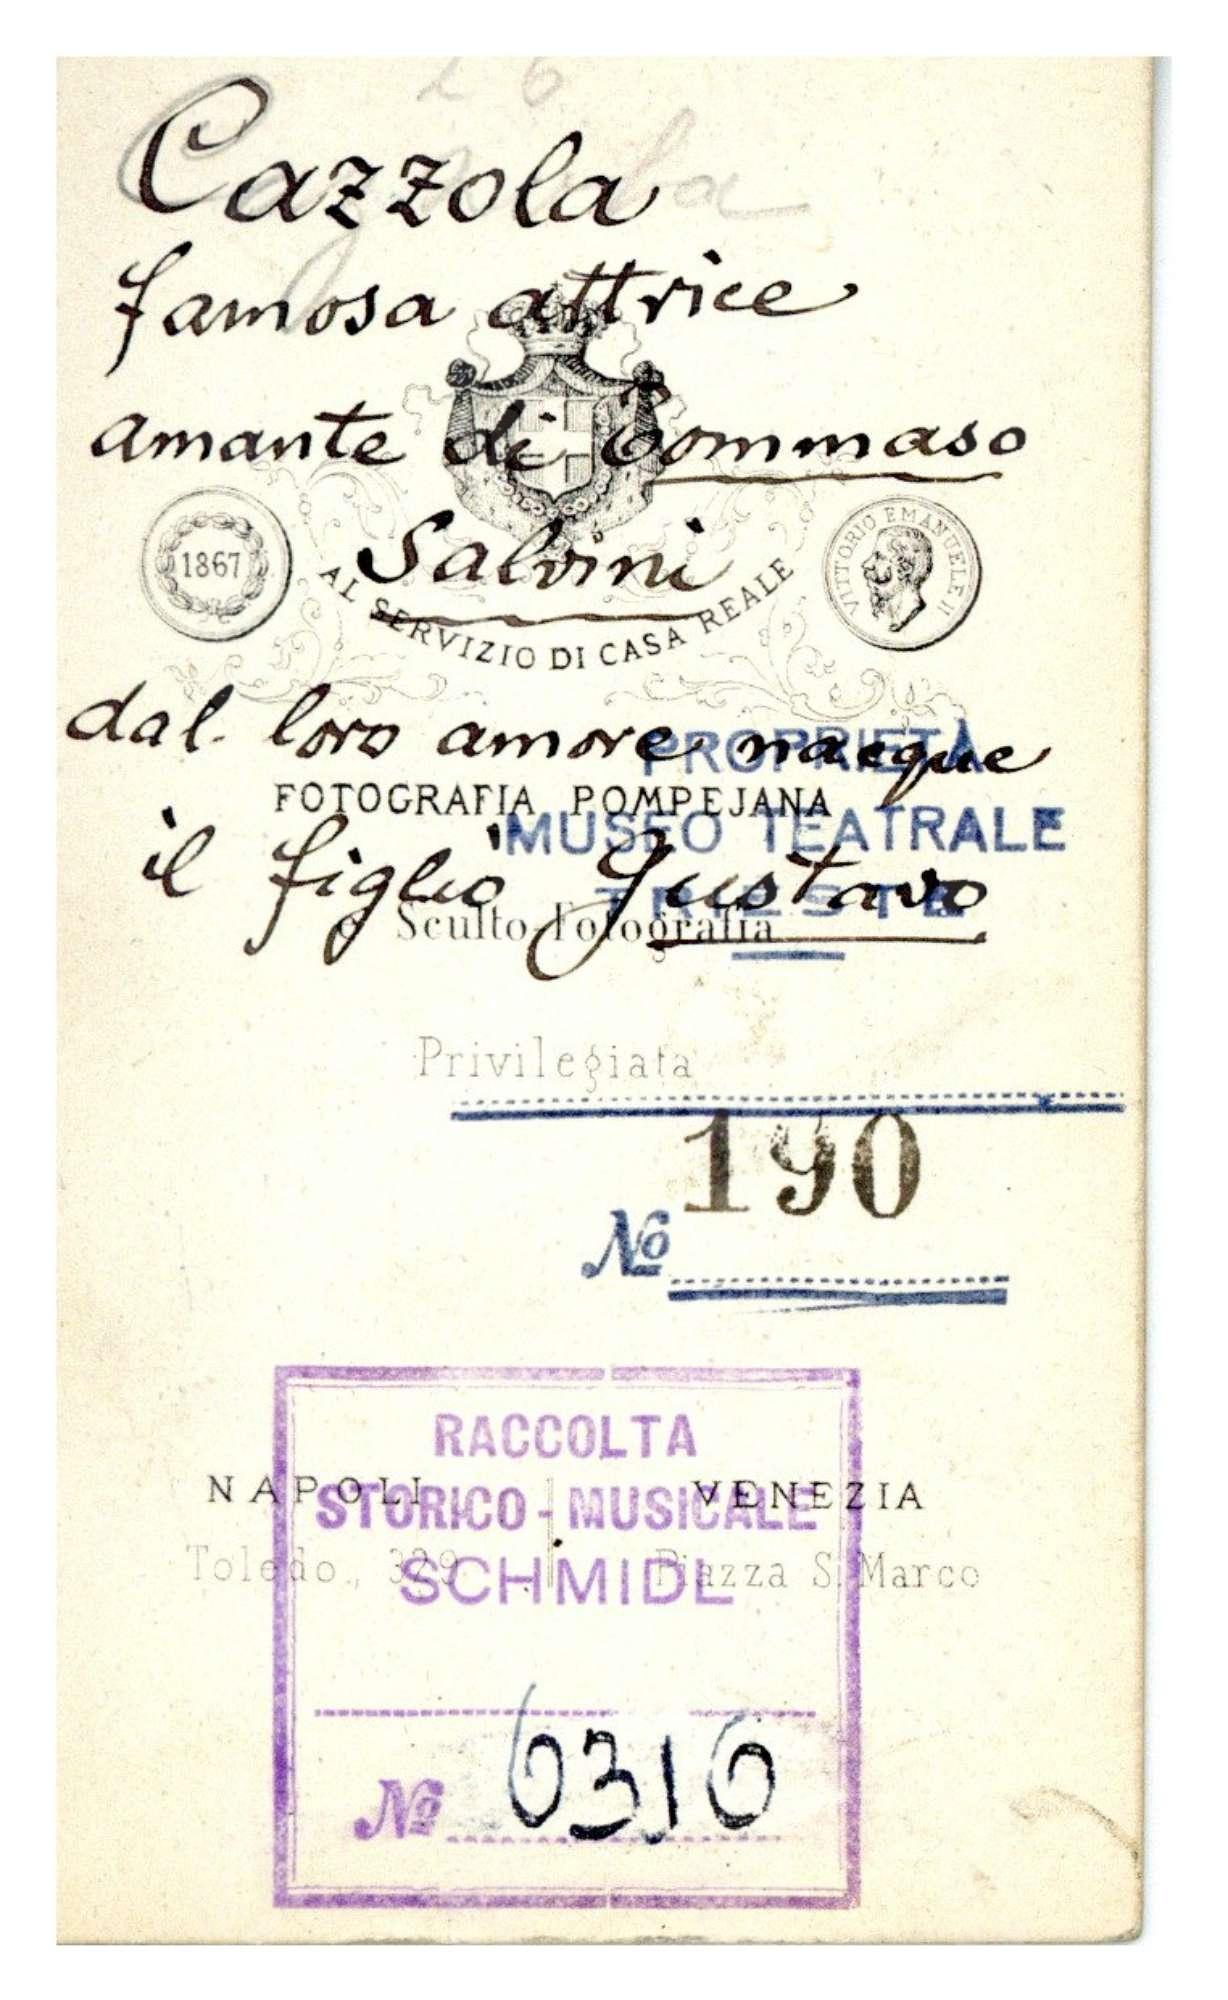 Cazzola
famosa attrice
amante di Tommaso
Salvini
1867
VITTORIO EMANUELE II
AL SERVIZIO DI CASA REALE
dal loro amore nacque
PROPRIETÀ
FOTOGRAFIA POMPEJANA
MUSEO TEATRALE
il figlio Gustavo
TRIESTE
e Sculto-Fotografia
Privilegiata
190
No
RACCOLTA
NAPOLI VENEZIA
STORICO-MUSICALE
Toledo, 329 Piazza S. Marco
SCHMIDL
No 6316